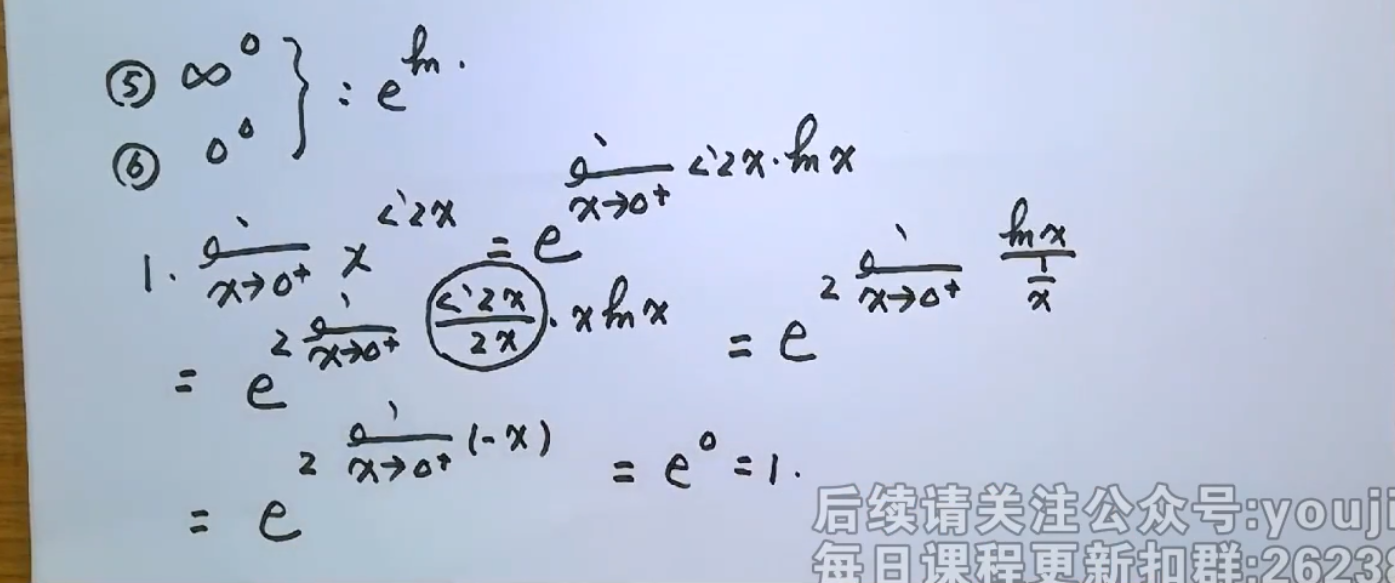 ⑤ ∞^0 } : e^{ln}.
⑥ 0^0
1. lim_{x→0+} x^{sin2x} = e^{lim_{x→0+} sin2x·lnx}
= e^{2 lim_{x→0+} (sin2x/2x)·xlnx} = e^{2 lim_{x→0+} lnx/(1/x)}
= e^{2 lim_{x→0+} (-x)} = e^0 = 1.
后续请关注公众号:youji
每日课程更新扣群:26238